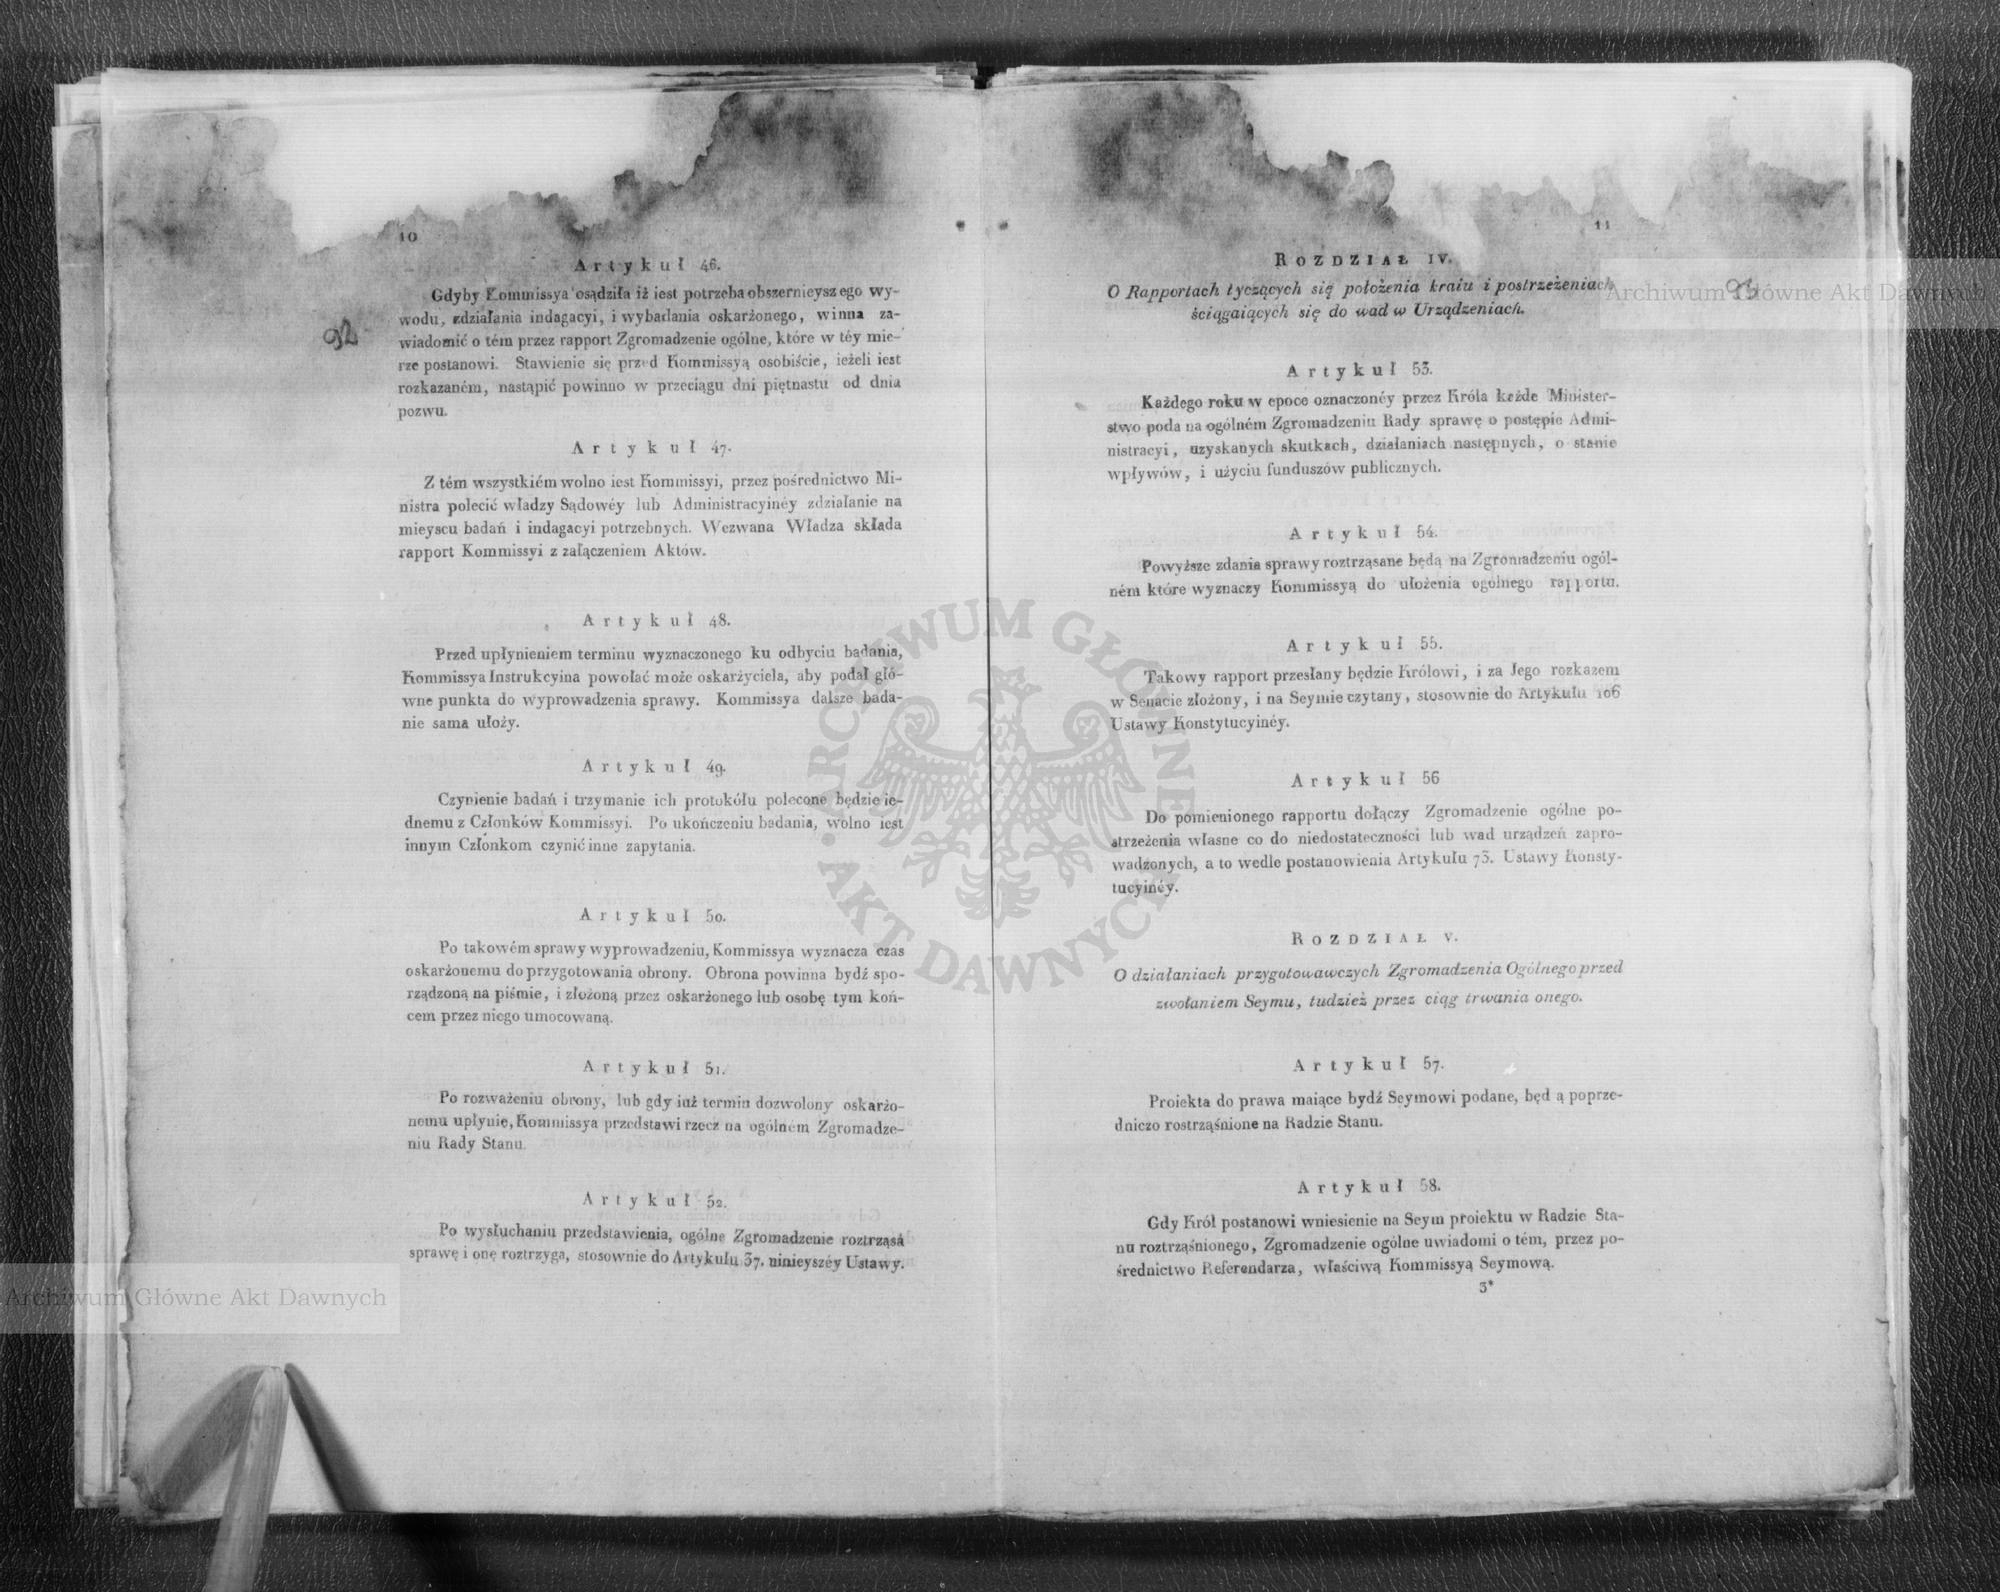 10
Artykuł 46.
Gdyby Kommissya osądziła iż iest potrzeba obszernieyszego wy-
wodu, zdziałania indagacyi, i wybadania oskarżonego, winna za-
wiadomić o tém przez rapport Zgromadzenie ogólne, które w téy mie-
rze postanowi. Stawienie się przed Kommissyą osobiście, ieżeli iest
rozkazaném, nastąpić powinno w przeciągu dni piętnastu od dnia
pozwu.
92
Artykuł 47.
Z tém wszystkiém wolno iest Kommissyi, przez pośrednictwo Mi-
nistra polecić władzy Sądowéy lub Administracyinéy zdziałanie na
mieyscu badań i indagacyi potrzebnych. Wezwana Władza składa
rapport Kommissyi z załączeniem Aktów.
Artykuł 48.
Przed upłynieniem terminu wyznaczonego ku odbyciu badania,
Kommissya Instrukcyina powołać może oskarżyciela, aby podał głó-
wne punkta do wyprowadzenia sprawy. Kommissya dalsze bada-
nie sama ułoży.
Artykuł 49.
Czynienie badań i trzymanie ich protokółu polecone będzie ie-
dnemu z Członków Kommissyi. Po ukończeniu badania, wolno iest
innym Członkom czynić inne zapytania.
Artykuł 50.
Po takowém sprawy wyprowadzeniu, Kommissya wyznacza czas
oskarżonemu do przygotowania obrony. Obrona powinna bydź spo-
rządzoną na piśmie, i złożoną przez oskarżonego lub osobę tym koń-
cem przez niego umocowaną.
Artykuł 51.
Po rozważeniu obrony, lub gdy iuż termin dozwolony oskarżo-
nemu upłynie, Kommissya przedstawi rzecz na ogólném Zgromadze-
niu Rady Stanu.
Artykuł 52.
Po wysłuchaniu przedstawienia, ogólne Zgromadzenie roztrząsa
sprawę i onę roztrzyga, stosownie do Artykułu 37. ninieyszéy Ustawy.
Archiwum Główne Akt Dawnych
11
ROZDZIAŁ IV.
O Rapportach tyczących się położenia kraiu i postrzeżeniach
ściągaiących się do wad w Urządzeniach.
Archiwum Główne Akt Dawnych
93
Artykuł 53.
Każdego roku w epoce oznaczonéy przez Króla każde Minister-
stwo poda na ogólném Zgromadzeniu Rady sprawę o postępie Admi-
nistracyi, uzyskanych skutkach, działaniach następnych, o stanie
wpływów, i użyciu funduszów publicznych.
Artykuł 54.
Powyższe zdania sprawy roztrząsane będą na Zgromadzeniu ogól-
ném które wyznaczy Kommissyą do ułożenia ogolnego rapportu.
Artykuł 55.
Takowy rapport przesłany będzie Królowi, i za Jego rozkazem
w Senacie złożony, i na Seymie czytany, stosownie do Artykułu 106
Ustawy Konstytucyinéy.
Artykuł 56
Do pomienionego rapportu dołączy Zgromadzenie ogólne po-
strzeżenia własne co do niedostateczności lub wad urządzeń zapro-
wadzonych, a to wedle postanowienia Artykułu 73. Ustawy Konsty-
tucyinéy.
ROZDZIAŁ V.
O działaniach przygotowawczych Zgromadzenia Ogólnego przed
zwołaniem Seymu, tudzież przez ciąg trwania onego.
Artykuł 57.
Proiekta do prawa maiące bydź Seymowi podane, będ ą poprze-
dniczo rostrząśnione na Radzie Stanu.
Artykuł 58.
Gdy Król postanowi wniesienie na Seym proiektu w Radzie Sta-
nu roztrząśnionego, Zgromadzenie ogólne uwiadomi o tém, przez po-
średnictwo Referendarza, właściwą Kommissyą Seymową.
3*
ARCHIWUM GŁÓWNE AKT DAWNYCH